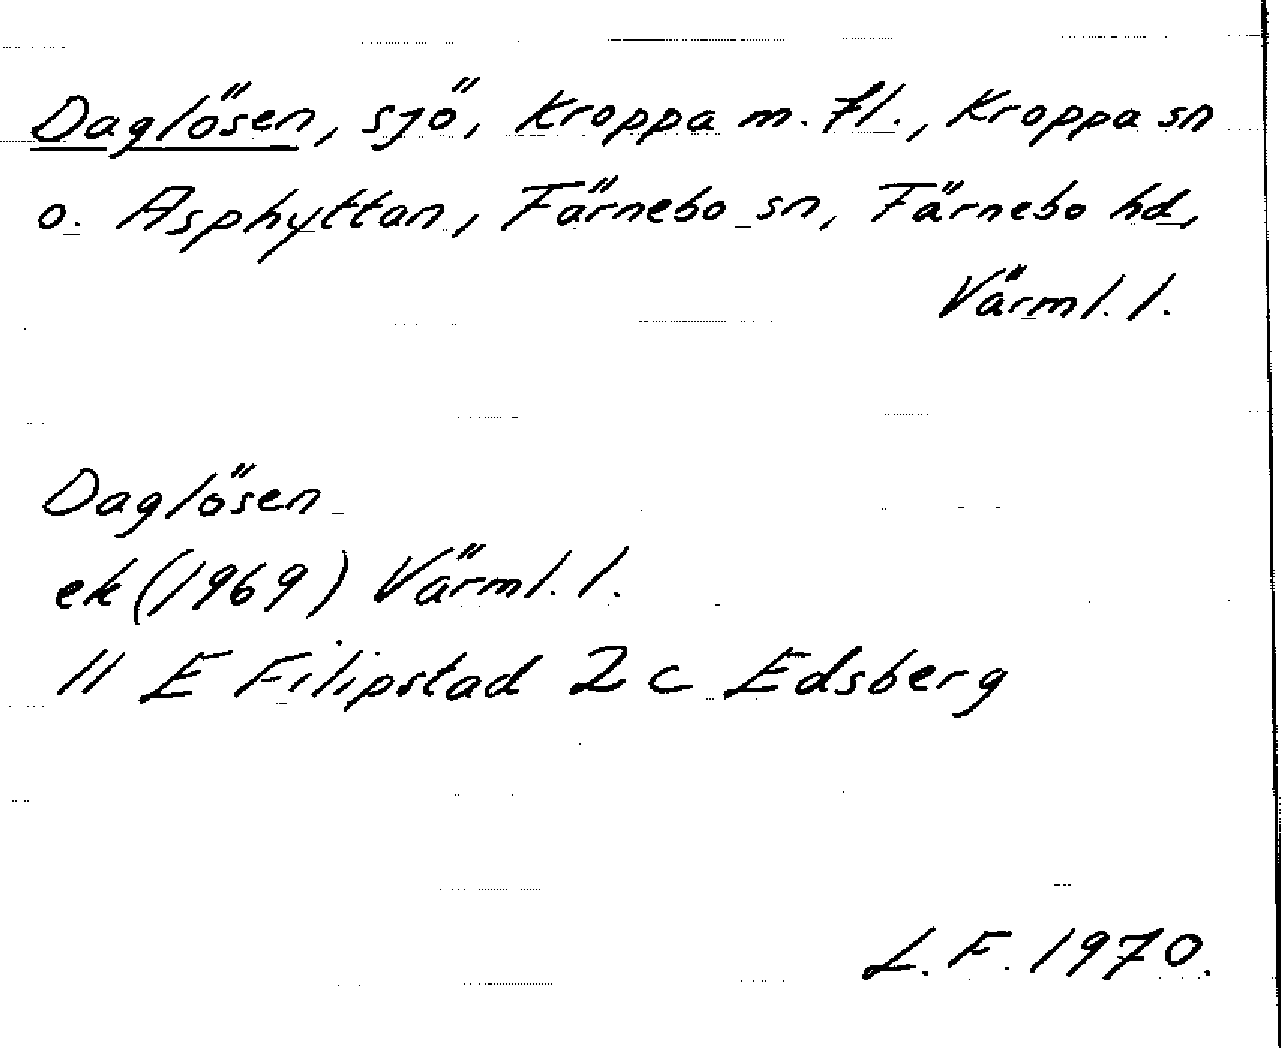 Daglösen, sjö, Kroppa m. fl., Kroppa sn
o. Asphyttan, Färnebo sn, Färnebo hd,
Värml. l.
Daglösen
ek (1969) Värml. l.
11 E Filipstad 2 c Edsberg
L. F. 1970.